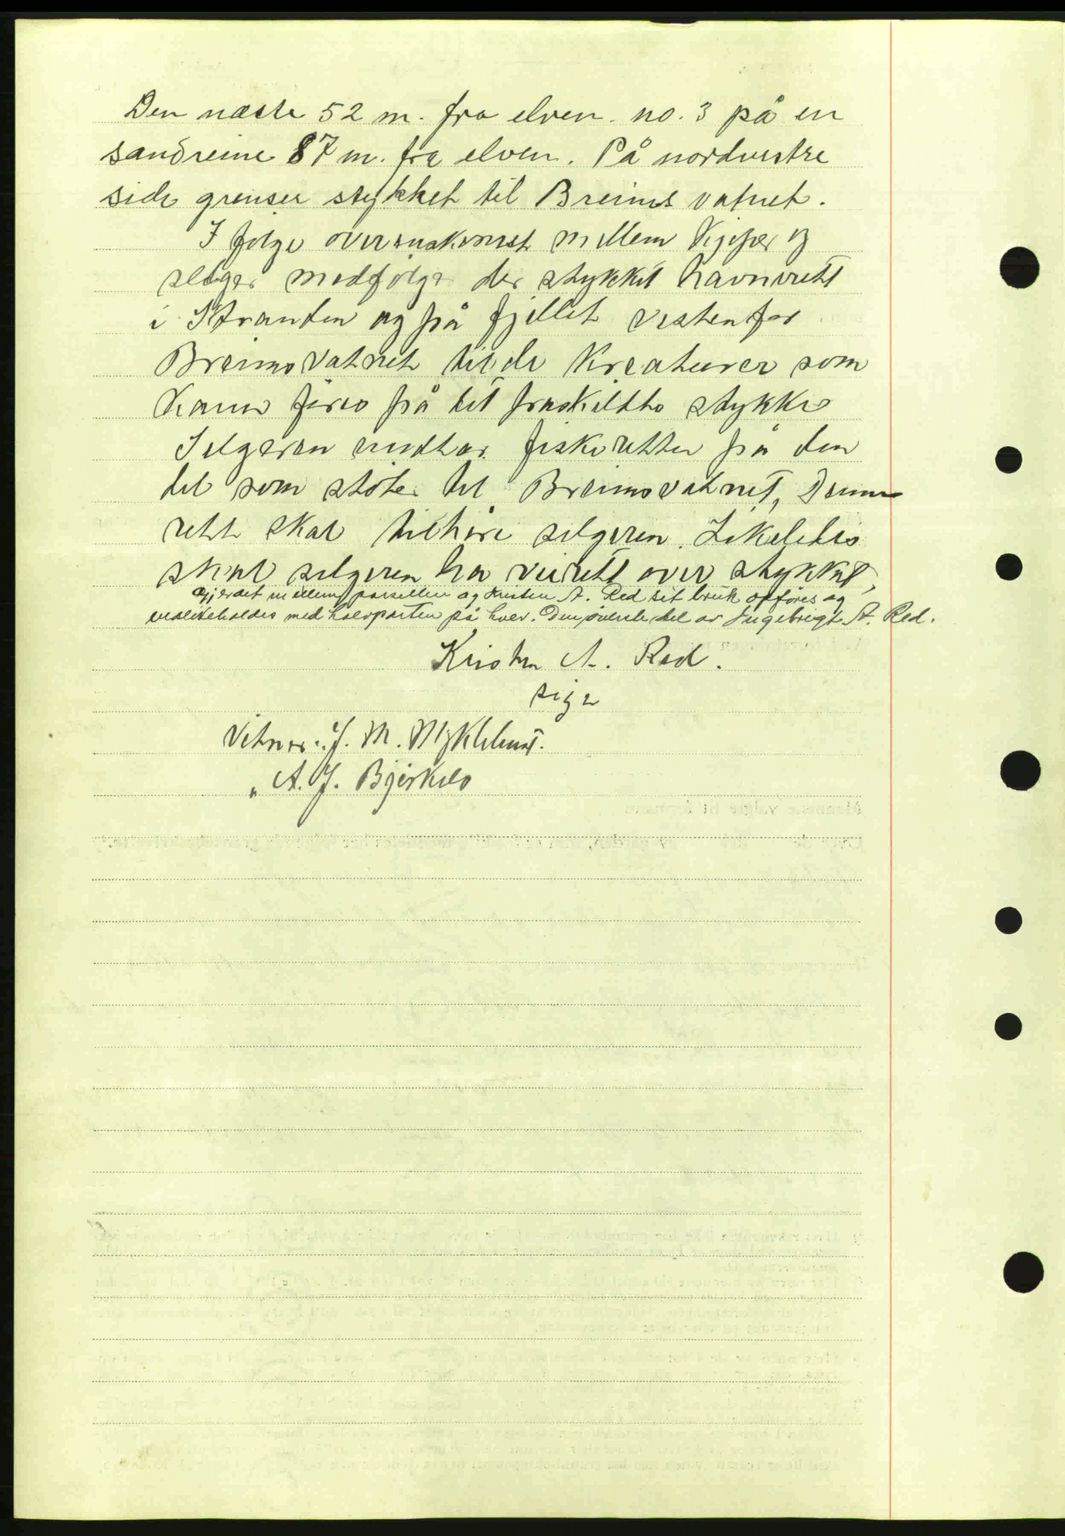 Den næste 52 m. fra elven. no. 3 på en
sandreine 87 m. fra elven. På nordvestre
side grenser stykket til Breims vatnet.
I følge overenskomst mellem kjøper og
selger medfølger der stykket havnerett
i Stranden og på fjellet vestenfor
Breimsvatnet til de kreaturer som
kann föres på det fraskildte stykke
Selgeren undtar fiskeretten på den
del som støter til Breimsvatnet, Denne
rett skal tilhøre selgeren. Likeledes
skal selgeren ha veirett over stykket,
Gjerdet mellem parsellen og Kristen A. Red sit bruk opføres og
vedlikeholdes med halvparten på hver. Den øverste del av Ingebrigt A. Red.
Kristen A. Red.
sign
Vitner: J. M. Myklebust.
" A. J. Bjørkelo